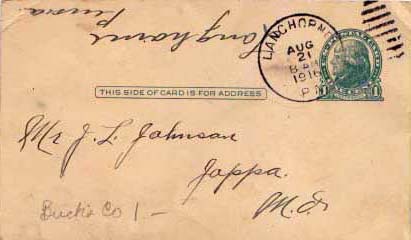 Langhorne
Penna.
LANGHORNE
AUG
21
8 AM
1916
PA
THIS SIDE OF CARD IS FOR ADDRESS
1 1
Mr J. L. Johnson
Joppa.
Md.
Bucks Co 1 –